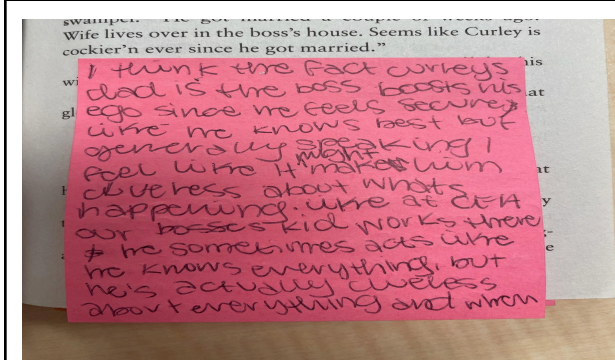 swamper. "He got married a couple of weeks ago.
Wife lives over in the boss's house. Seems like Curley is
cockier'n ever since he got married."
his
wi
at
gl
I think the fact curleys
dad is the boss boosts his
ego since he feels secure,
like he knows best but
generally speaking I
feel like it might make him
clueless about whats
happening. like at CFA
our bosses kid works there
& he sometimes acts like
he knows everything, but
he's actually clueless
about everything and when
at
h
y
e